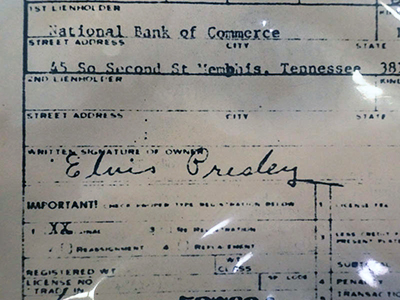 1ST LIENHOLDER
National Bank of Commerce
STREET ADDRESS CITY STATE
45 So Second St Memphis, Tennessee 381
2ND LIENHOLDER KIND
STREET ADDRESS CITY STATE
WRITTEN SIGNATURE OF OWNER
Elvis Presley
IMPORTANT! CHECK PROPER TYPE REGISTRATION BELOW 1 LICENSE FEE
1 XX 3 RE REGISTRATION
REASSIGNMENT 4 REPLACEMENT
PRESENT PLATE
WT
CLASS
REGISTERED WT
LICENSE NO
TRADE IN
4 PENALTY
TRANSACTION